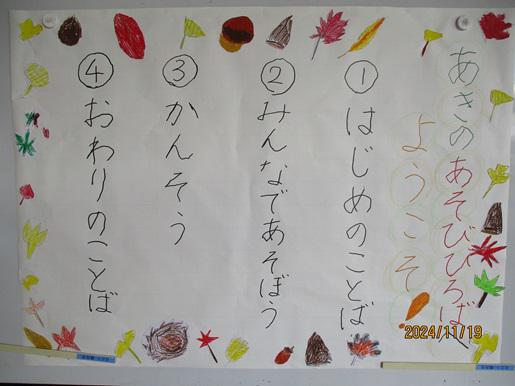 あきのあそびひろばへ
ようこそ
①はじめのことば
②みんなであそぼう
③かんそう
④おわりのことば
2024/11/19